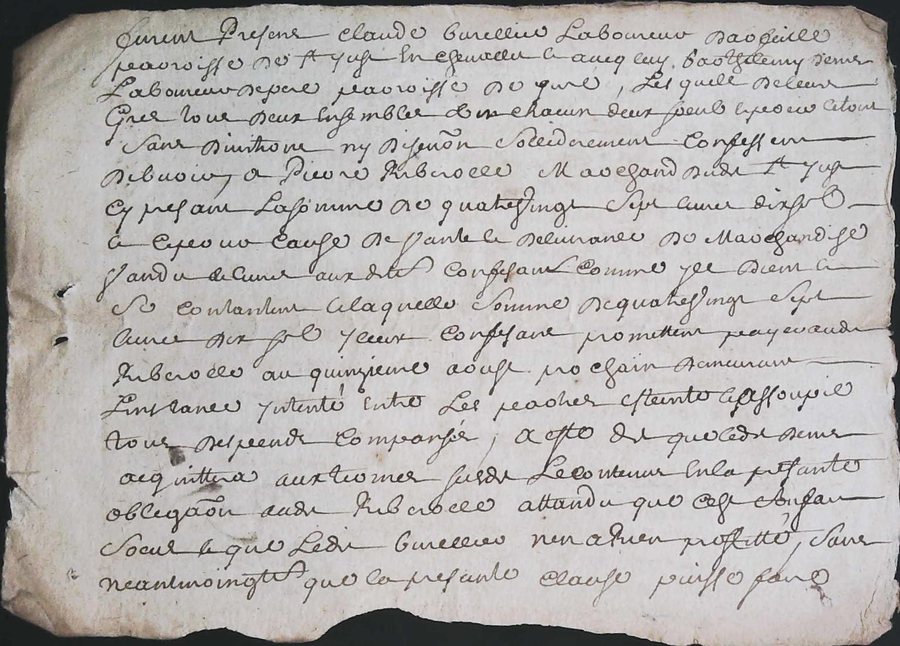 furent Presens claude burellier Laboureur
parroisse de St Just En chevallet & avecq luy barthelemy
Laboureur parroisse De , Lesquels De leurs
Grez tous deux Ensembles & un chacun deux seuls & pour le tout
Sans Divitions ny Disention Sollidairement Confessent
Debvoir, a Pierre Riberolle Marchand dudt St Just
Cy presant La somme De quatre vingt Sept livres dix sol
& Ce pour Cause De vante & Delivrance De Marchandise
vandue & livré aux dits Confesant Comme ils Dient &
Se contantent & laquelle Somme De quatre vingt Sept
livres Dix sol yceux Confesant promettent payer audit
Riberolle au quinzieme aoust prochain Demeurant
L'instance Intenté Entre Les parties Esteinte & assoupie
tous Despends Compansés, a esté dit que ledt
acquittera aux termes susdt Le contenu En la presante
obligaon audt Riberolle attandu que C'est Son fait
Seul & que Ledit burellier n'en a Rien profitté, Sans
neantmoingts que la presante clause puisse faire